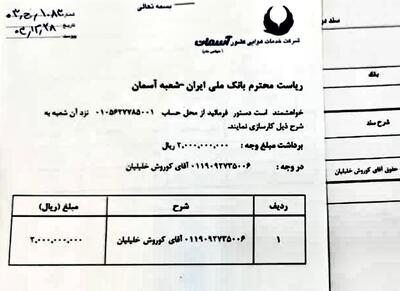 بسمه تعالی
شماره ۱۰۸۲/خ/۰۳
تاریخ ۰۳/۱۲/۲۸
شرکت خدمات هوایی کشور آسمان
(سهامی خاص)
ریاست محترم بانک ملی ایران -شعبه آسمان
خواهشمند است دستور فرمائید از محل حساب ۰۱۰۵۶۲۷۷۸۵۰۰۱ نزد آن شعبه به
شرح ذیل کارسازی نمایند.
برداشت مبلغ وجه : ۲،۰۰۰،۰۰۰،۰۰۰ ریال
در وجه : ۰۱۱۹۰۹۲۷۳۵۰۰۶ آقای کوروش خلیلیان
ردیف شرح مبلغ (ریال)
۱ ۰۱۱۹۰۹۲۷۳۵۰۰۶ آقای کوروش خلیلیان ۲،۰۰۰،۰۰۰،۰۰۰
سند در
بانک
شرح سند
حقوق آقای کوروش خلیلیان